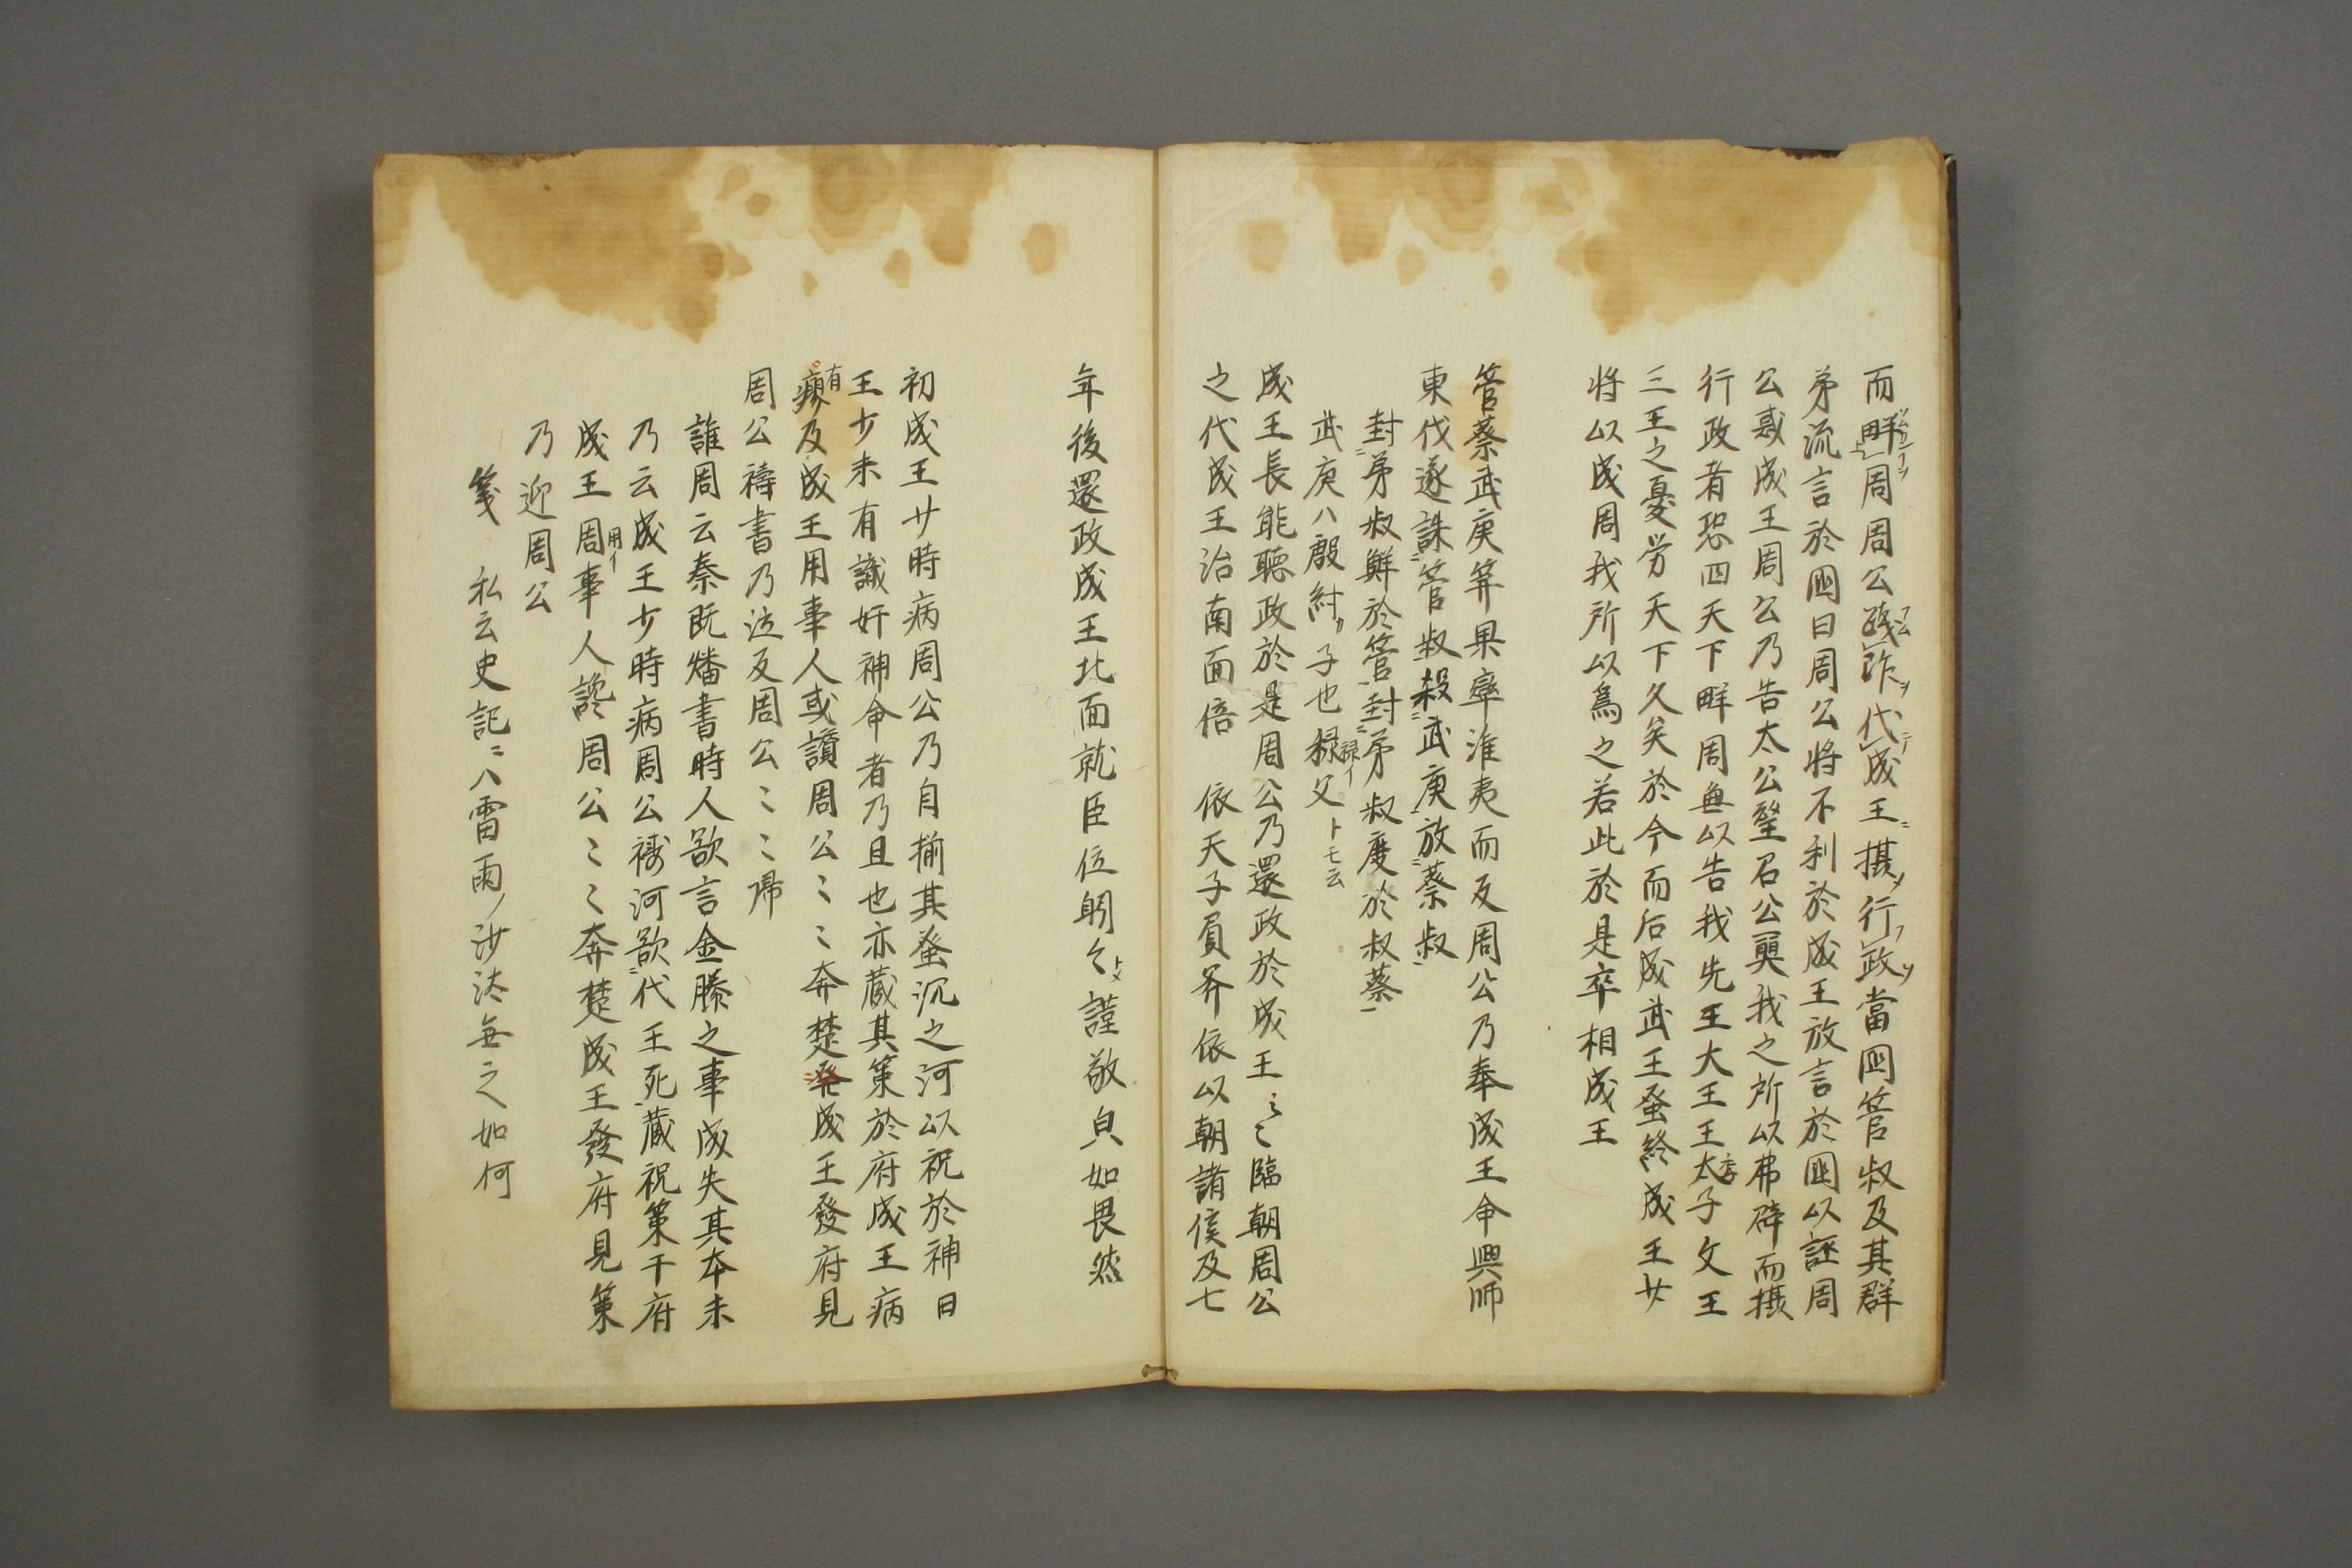 而畔周周公踐阼代成王摂行政當國管叔及其群
弟流言於國曰周公将不利於成王放言於國以誣周
公惑成王周公乃告太公望召公奭我之所以弗辟而摂
行政者恐四天下畔周無以告我先王大王王太季子文王
三王之憂労天下久矣於今而后成武王蚤終成王廿
将以成周我所以為之若此於是卒相成王
管蔡武庚等果率淮夷而反周公乃奉成王命興師
東伐遂誅管叔殺武庚放蔡叔
封弟叔鮮於管封弟叔度於叔蔡
武庚八殷紂カ子也禄禄イ父トモ云
成王長能聴政於是周公乃還政於成王〻〻臨朝周公
之代成王治南面倍 依天子負斧依以朝諸侯及七
年後還政成王北面就臣位躬〻トメ謹敬皃如畏然
初成王廿時病周公乃自揃其蚤沉之河以祝於神曰
王少未有識奸神命者乃且也亦蔵其策於府成王病
有瘳及成王用事人或讃周公〻〻奔楚成王發府見
周公禱書乃泣反周公〻〻帰
誰周云秦既燔書時人欲言金縢之事成失其本末
乃云成王少時病周公禱河欲代王死蔵祝策于府
成王周用イ事人讒周公〻〻奔楚成王發府見策
乃迎周公
箋 私云史記ニハ雷雨ノ沙汰無之如何